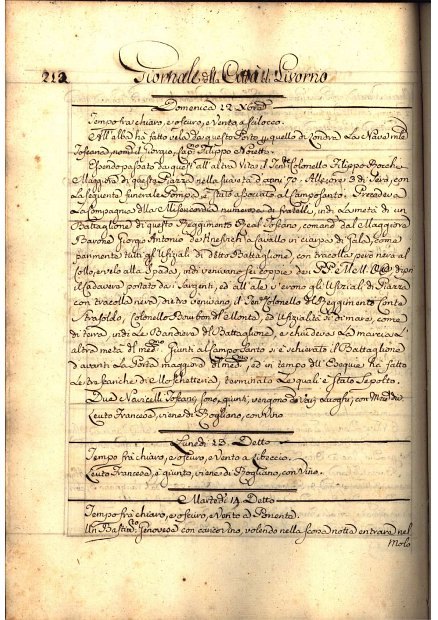 212 Giornale della Città di Livorno
Domenica 12 Xbre
Tempo frà chiaro, e oscuro, e Vento a Scilocco.
All'alba hà fatto vela da questo Porto p quello di Londra La Nave
Toscana, nom.ta il Giorgio, Cap.no Filippo
Essendo passato da questa all'altra Vita il Ten.te Colonello Filippo
Maggiore di questa Piazza nella sua età d'anni 70. Alle ore 3 di sera, con
La seguente funerale Pompa è stato associato al Camposanto. Precedeva
La Compagnia della Misericordia numerosa di fratelli, indi La metà di un
Battaglione di questo Reggimento Real Toscano, comand. dal Maggiore
Barone Giorgio Antonio de a Cavallo in ciarpa di Gala, come
parimente tutti gli Ufiziali di detto Battaglione, con tracolla però nera al
Collo, e velo alla Spada, indi venivano sei coppie dei PP.
il Cadavere portato da Sargenti, ed all'ale v'erono gli Ufiziali di Piazza
con tracolla nera, dietro venivano il Ten.te Colonello del Reggimento Conte
Strasoldo, Colonello Bourbon del Monte, ed Ufizialità di mare, come
di terra, indi Le Bandiere del Battaglione, e chiudeva La marcia L'
altra metà del med.mo Giunti al Campo Santo si è schierato il Battaglione
davanti La Porta maggiore del med.mo, ed in tempo dell'Esequie hà fatto
Le tre scariche di Moschetteria, terminato Le quali è stato Sepolto.
Due Navicelli Toscani, sono, giunti, vengono da varj Luoghi, con
Leuto Francese, viene di Rogliano, con Vino
Lunedì 13. Detto
Tempo frà chiaro, e oscuro, e Vento a Libeccio.
Leuto Francese, è giunto, viene di Rogliano, con Vino.
Martedì 14 Detto
Tempo frà chiaro, e oscuro, e Vento a Ponente.
Un Bastim.to Genovese con carico Vino, volendo nella scorsa notte entrare nel
Molo